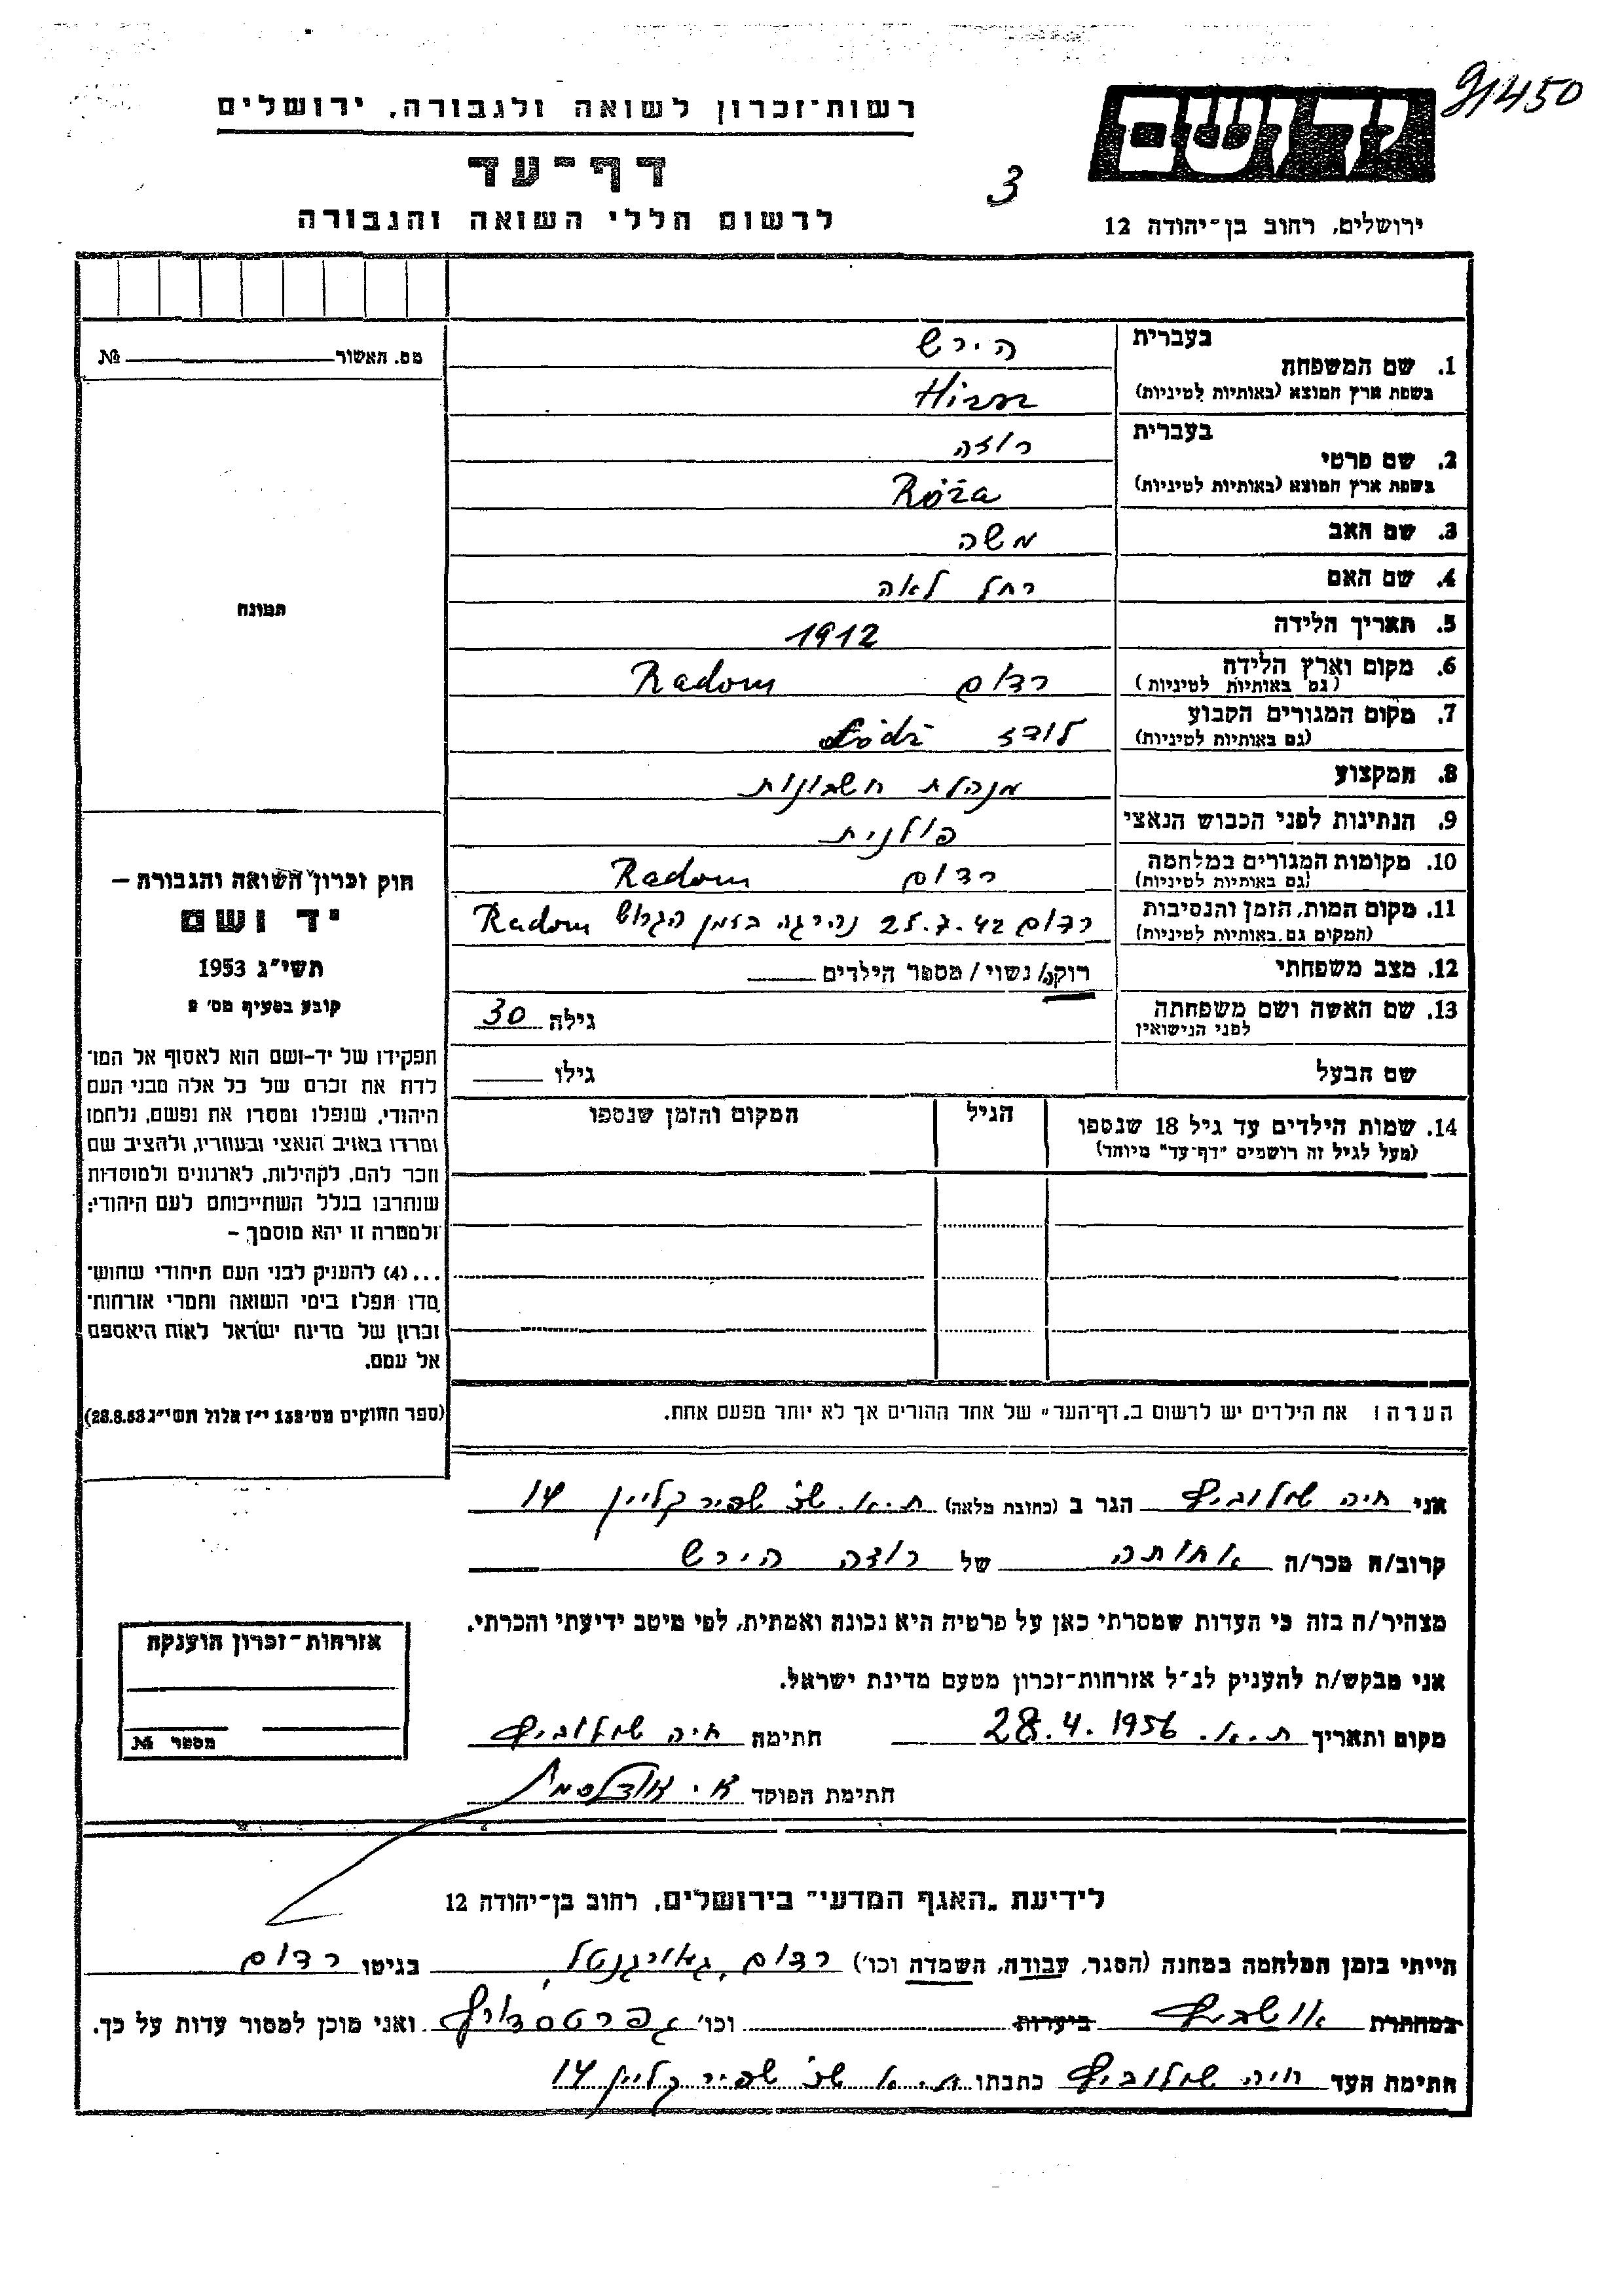 91450
רשות־זכרון לשואה ולגבורה, ירושלים
יד ושם
דף־עד
3
לרשום חללי השואה והגבורה
ירושלים, רחוב בן־יהודה 12
מס. האשור № 
1. שם המשפחה
בעברית
הירש
בשפת ארץ המוצא (באותיות לטיניות)
2. שם פרטי
בעברית
רוזה
בשפת ארץ המוצא (באותיות לטיניות)
Róża
3. שם האב משה
4. שם האם רחל לאה
5. תאריך הלידה 1912
6. מקום וארץ הלידה רדום Radom
(גם באותיות לטיניות)
7. מקום המגורים הקבוע לודז Łódź
(גם באותיות לטיניות)
8. המקצוע מנהלת חשבונות
9. הנתינות לפני הכבוש הנאצי פולנית
10. מקומות המגורים במלחמה רדום Radom
(גם באותיות לטיניות)
11. מקום המות, הזמן והנסיבות רדום 25.7.42 נהרגה בזמן הגרוש Radom
(המקום גם באותיות לטיניות)
12. מצב משפחתי רוקה/ נשוי/ מספר הילדים
13. שם האשה ושם משפחתה גילה 30
לפני הנישואין
שם הבעל גילו
14. שמות הילדים עד גיל 18 שנספו הגיל המקום והזמן שנספו
(מעל לגיל זה רושמים "דף־עד" מיוחד)
הערה: את הילדים יש לרשום ב„דף־העד" של אחד ההורים אך לא יותר מפעם אחת.
תמונה
חוק זכרון השואה והגבורה –
יד ושם
תשי"ג 1953
קובע בסעיף מס' 2
תפקידו של יד-ושם הוא לאסוף אל המו־
לדת את זכרם של כל אלה מבני העם
היהודי, שנפלו ומסרו את נפשם, נלחמו
ומרדו באויב הנאצי ובעוזריו, ולהציב שם
וזכר להם, לקהילות, לארגונים ולמוסדות
שנחרבו בגלל השתייכותם לעם היהודי;
ולמטרה זו יהא מוסמך –
...(4) להעניק לבני העם היהודי שהוש־
מדו ונפלו בימי השואה והמרי אזרחות־
זכרון של מדינת ישראל לאות היאספם
אל עמם.
(ספר החוקים מס' 132 י"ז אלול תשי"ג 28.8.53)
אני חיה הגר ב (כתובת מלאה) ת.א. קליין 14
קרוב/ה מכר/ה אחותה של רוזה הירש
מצהיר/ה בזה כי העדות שמסרתי כאן על פרטיה היא נכונה ואמתית, לפי מיטב ידיעתי והכרתי.
אני מבקש/ת להעניק לנ"ל אזרחות־זכרון מטעם מדינת ישראל.
מקום ותאריך ת.א. 28.4.1956 חתימה חיה
חתימת הפוקד
אזרחות־זכרון הוענקה
מספר №
לידיעת „האגף המדעי" בירושלים, רחוב בן־יהודה 12
הייתי בזמן המלחמה במחנה (הסגר, עבודה, השמדה וכו') רדום, בגיטו רדום
במחתרת אושביץ ביערות וכו' ואני מוכן למסור עדות על כך.
חתימת העד חיה כתבתו ת.א קליין 14